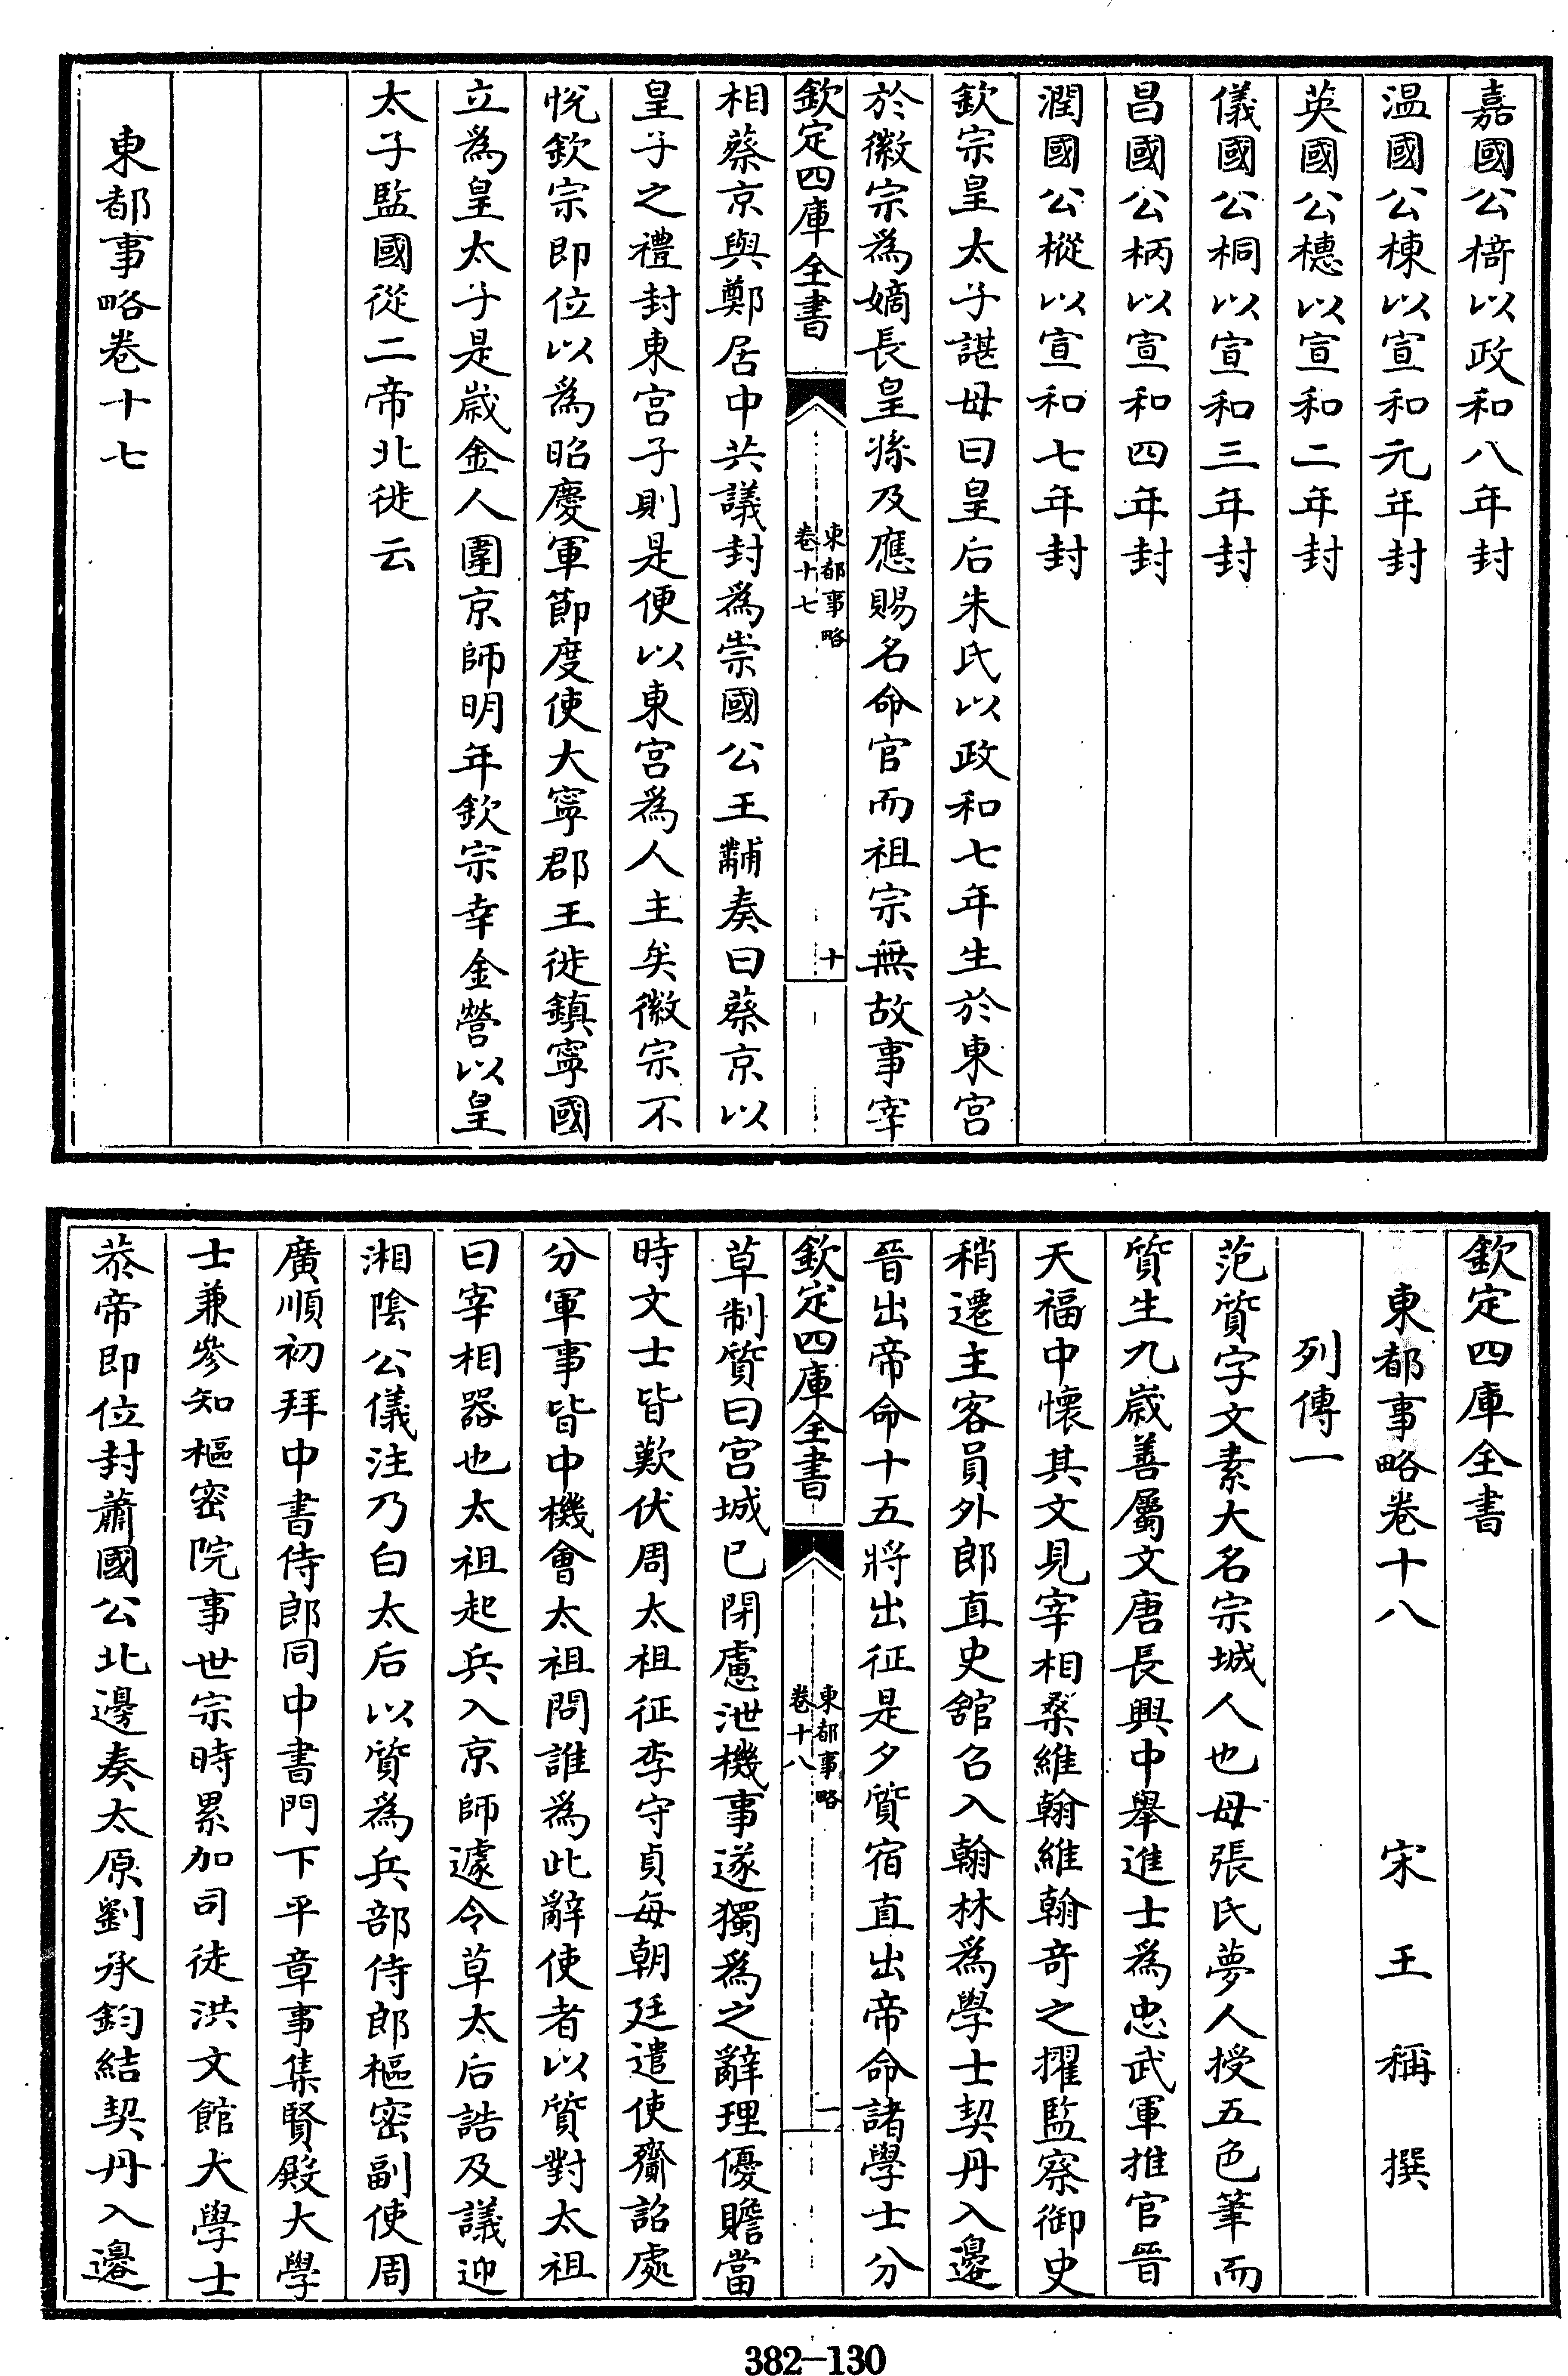 嘉國公椅以政和八年封
温國公棟以宣和元年封
英國公橞以宣和二年封
儀國公桐以宣和三年封
昌國公柄以宣和四年封
潤國公樅以宣和七年封
欽宗皇太子諶母曰皇后朱氏以政和七年生於東宫
於徽宗爲嫡長皇孫及應賜名命官而祖宗無故事宰
欽定四庫全書
東都事略
卷十七
十
相蔡京與鄭居中共議封爲崇國公王黼奏曰蔡京以
皇子之禮封東宫子則是便以東宫爲人主矣徽宗不
悅欽宗即位以爲昭慶軍節度使大寧郡王徙鎮寧國
立爲皇太子是歲金人圍京師明年欽宗幸金營以皇
太子監國從二帝北徙云
東都事略卷十七
欽定四庫全書
東都事略卷十八 宋 王 稱 撰
列傳一
范質字文素大名宗城人也母張氏夢人授五色筆而
質生九歲善屬文唐長興中舉進士爲忠武軍推官晉
天福中懷其文見宰相桑維翰維翰竒之擢監察御史
稍遷主客員外郎直史館召入翰林爲學士契丹入邊
晉出帝命十五將出征是夕質宿直出帝命諸學士分
欽定四庫全書
東都事略
卷十八
一
草制質曰宫城已閉慮泄機事遂獨爲之辭理優贍當
時文士皆歎伏周太祖征李守貞每朝廷遣使齎詔處
分軍事皆中機會太祖問誰爲此辭使者以質對太祖
曰宰相器也太祖起兵入京師遽令草太后誥及議迎
湘陰公儀注乃白太后以質爲兵部侍郎樞密副使周
廣順初拜中書侍郎同中書門下平章事集賢殿大學
士兼參知樞密院事世宗時累加司徒洪文館大學士
恭帝即位封蕭國公北邊奏太原劉承鈞結契丹入邊
382-130